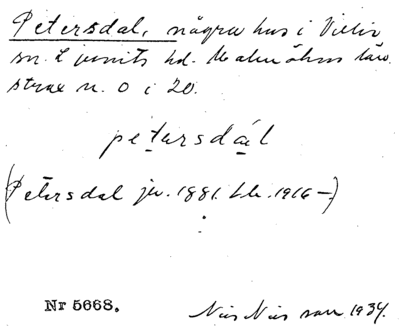 Petersdal, några hus i Villie
sn. Ljunits hd. Malmöhus län.
strax n. O i 20.
petərsdál
(Petersdal jr. 1881. 1916–)
Nr 5668.
Nils Nilsson 1934.